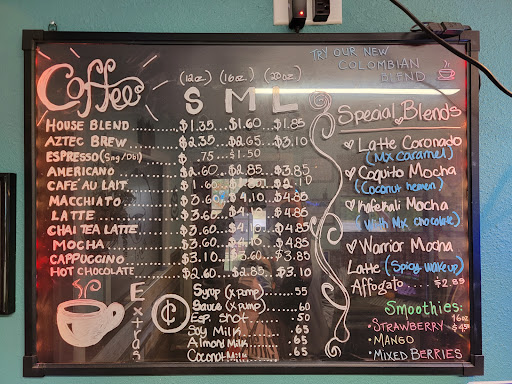 Coffee
(12oz.) (16oz.) (20oz)
S M L
HOUSE BLEND......$1.35...$1.60...$1.85
AZTEC BREW......$2.35...$2.65...$3.10
ESPRESSO (Sng/Dbl) $.75 $1.50
AMERICANO......$2.60...$2.85...$3.85
CAFÉ AU LAIT......$1.60
MACCHIATO......$3.60...$4.10...$4.85
LATTE......$3.60...$4.10...$4.85
CHAI TEA LATTE...$3.60...$4.10...$4.85
MOCHA......$3.60...$4.10...$4.85
CAPPUCCINO......$3.10...$3.60...$3.85
HOT CHOCOLATE......$2.60...$2.85...$3.10
Extras
Syrup (x pump) .55
Sauce (x pump) .60
Esp. Shot .50
Soy Milk .65
Almond Milk .65
Coconut Milk .65
TRY OUR NEW
COLOMBIAN
BLEND
Special Blends
Latte Coronado
(Mx caramel)
Coquito Mocha
(Coconut heaven)
Mocha
(With Mx chocolate)
Warrior Mocha
Latte (Spicy wake up)
Affogato $2.85
Smoothies:
16oz
• STRAWBERRY
• MANGO
• MIXED BERRIES